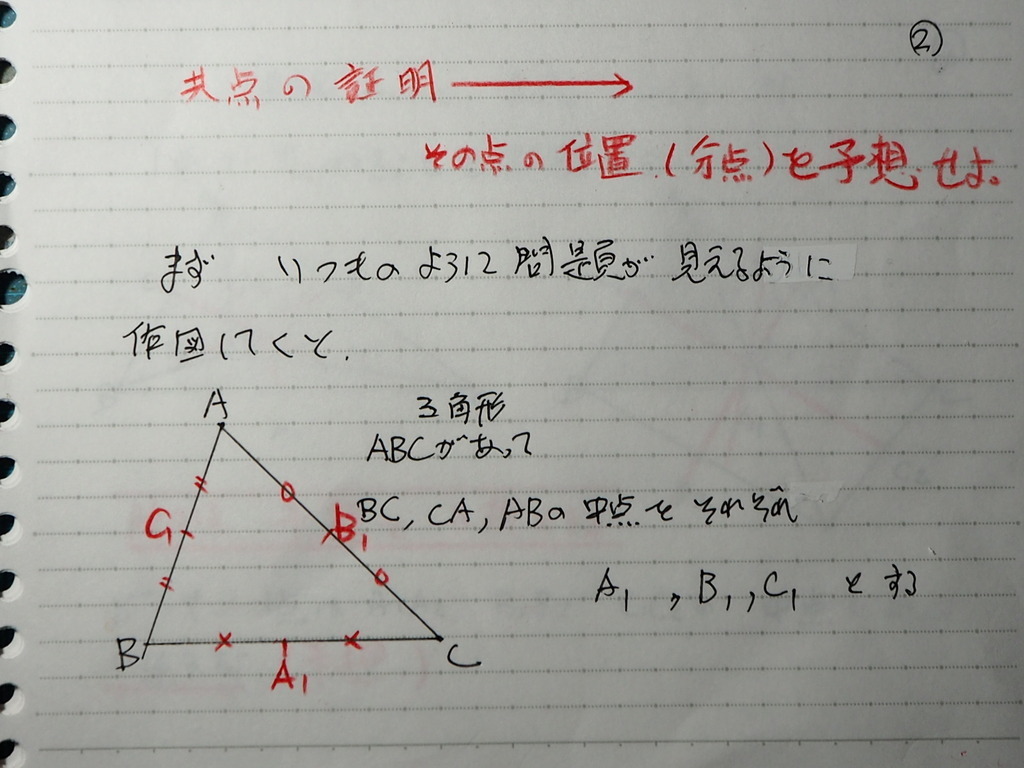 ②
共点の証明→
その点の位置(分点)を予想せよ。
まず いつものように問題が見えるように
作図してくと、
A
三角形
ABCがあって
BC, CA, ABの中点をそれぞれ
C1
B1
A1, B1, C1とする
B
C
A1